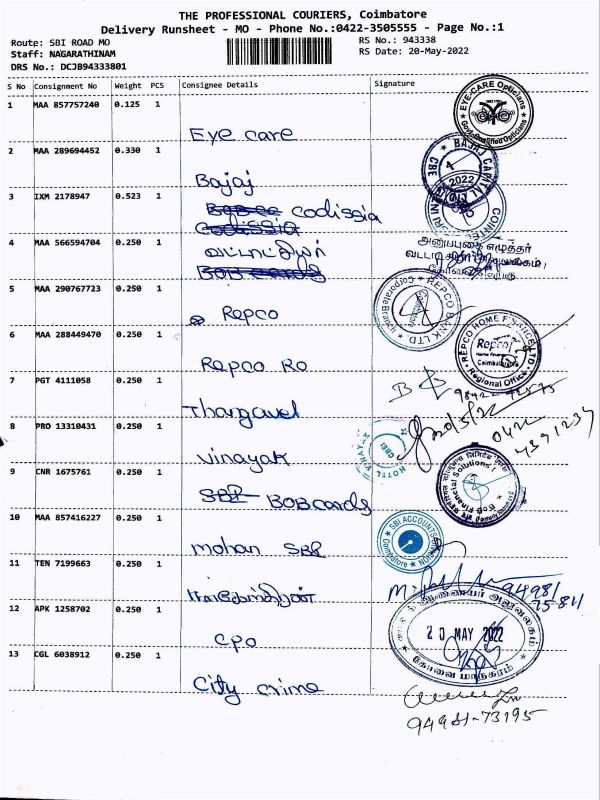 THE PROFESSIONAL COURIERS, Coimbatore
Delivery Runsheet - MO - Phone No.:0422-3505555 - Page No.:1
Route: SBI ROAD MO
RS No.: 943338
Staff: NAGARATHINAM
RS Date: 20-May-2022
DRS No.: DCJB94333801
S No Consignment No Weight PCS Consignee Details Signature
1 MAA 857757240 0.125 1
Eye care
EYE-CARE Opticians
Govt. Qualified Opticians
2 MAA 289694452 0.330 1
Bajaj
2022
CBE
3 IXM 2178947 0.523 1
codissia
Codissia
4 MAA 566594704 0.250 1
வட்டாட்சியர்
BOB cards
அனுப்புகை எழுத்தர்
5 MAA 290767723 0.250 1
Repco
REPCO BANK LTD
Coimbatore
6 MAA 288449470 0.250 1
Repco RO
REPCO HOME FINANCE LTD
Repco
Home Finance
Coimbatore
Regional Office
7 PGT 4111058 0.250 1
Thangavel
8 PRO 13310431 0.250 1
Vinayak
HOTEL VINAYAK
CBE
0422
4391239
9 CNR 1675761 0.250 1
SBI BOB cards
BOB Financial Solutions
10 MAA 857416227 0.250 1
mohan SBI
SBI ACCOUNTS
Coimbatore
11 TEN 7199663 0.250 1
94981
75841
12 APK 1258702 0.250 1
CPO
20 MAY 2022
கோவை மாநகரம்
13 CGL 6038912 0.250 1
City crime
94981-73195